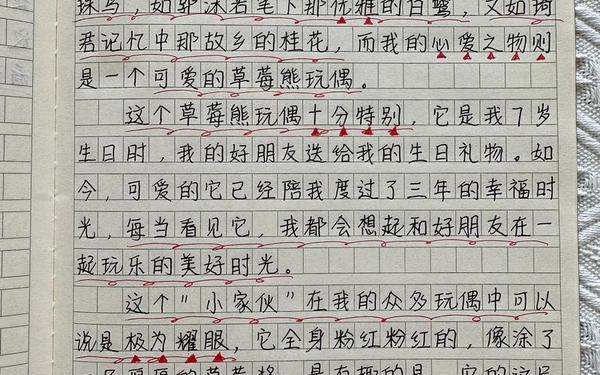 珠鸟，如郭沫若笔下那优雅的白鹭，又如琦
君记忆中那故乡的桂花，而我的心爱之物则
是一个可爱的草莓熊玩偶。
这个草莓熊玩偶十分特别，它是我7岁
生日时，我的好朋友送给我的生日礼物。如
今，可爱的它已经陪我度过了三年的幸福时
光，每当看见它，我都会想起和好朋友在一
起玩乐的美好时光。
这个"小家伙"在我的众多玩偶中可以
说是极为耀眼，它全身粉红粉红的，像涂了
是有趣的是，它的这